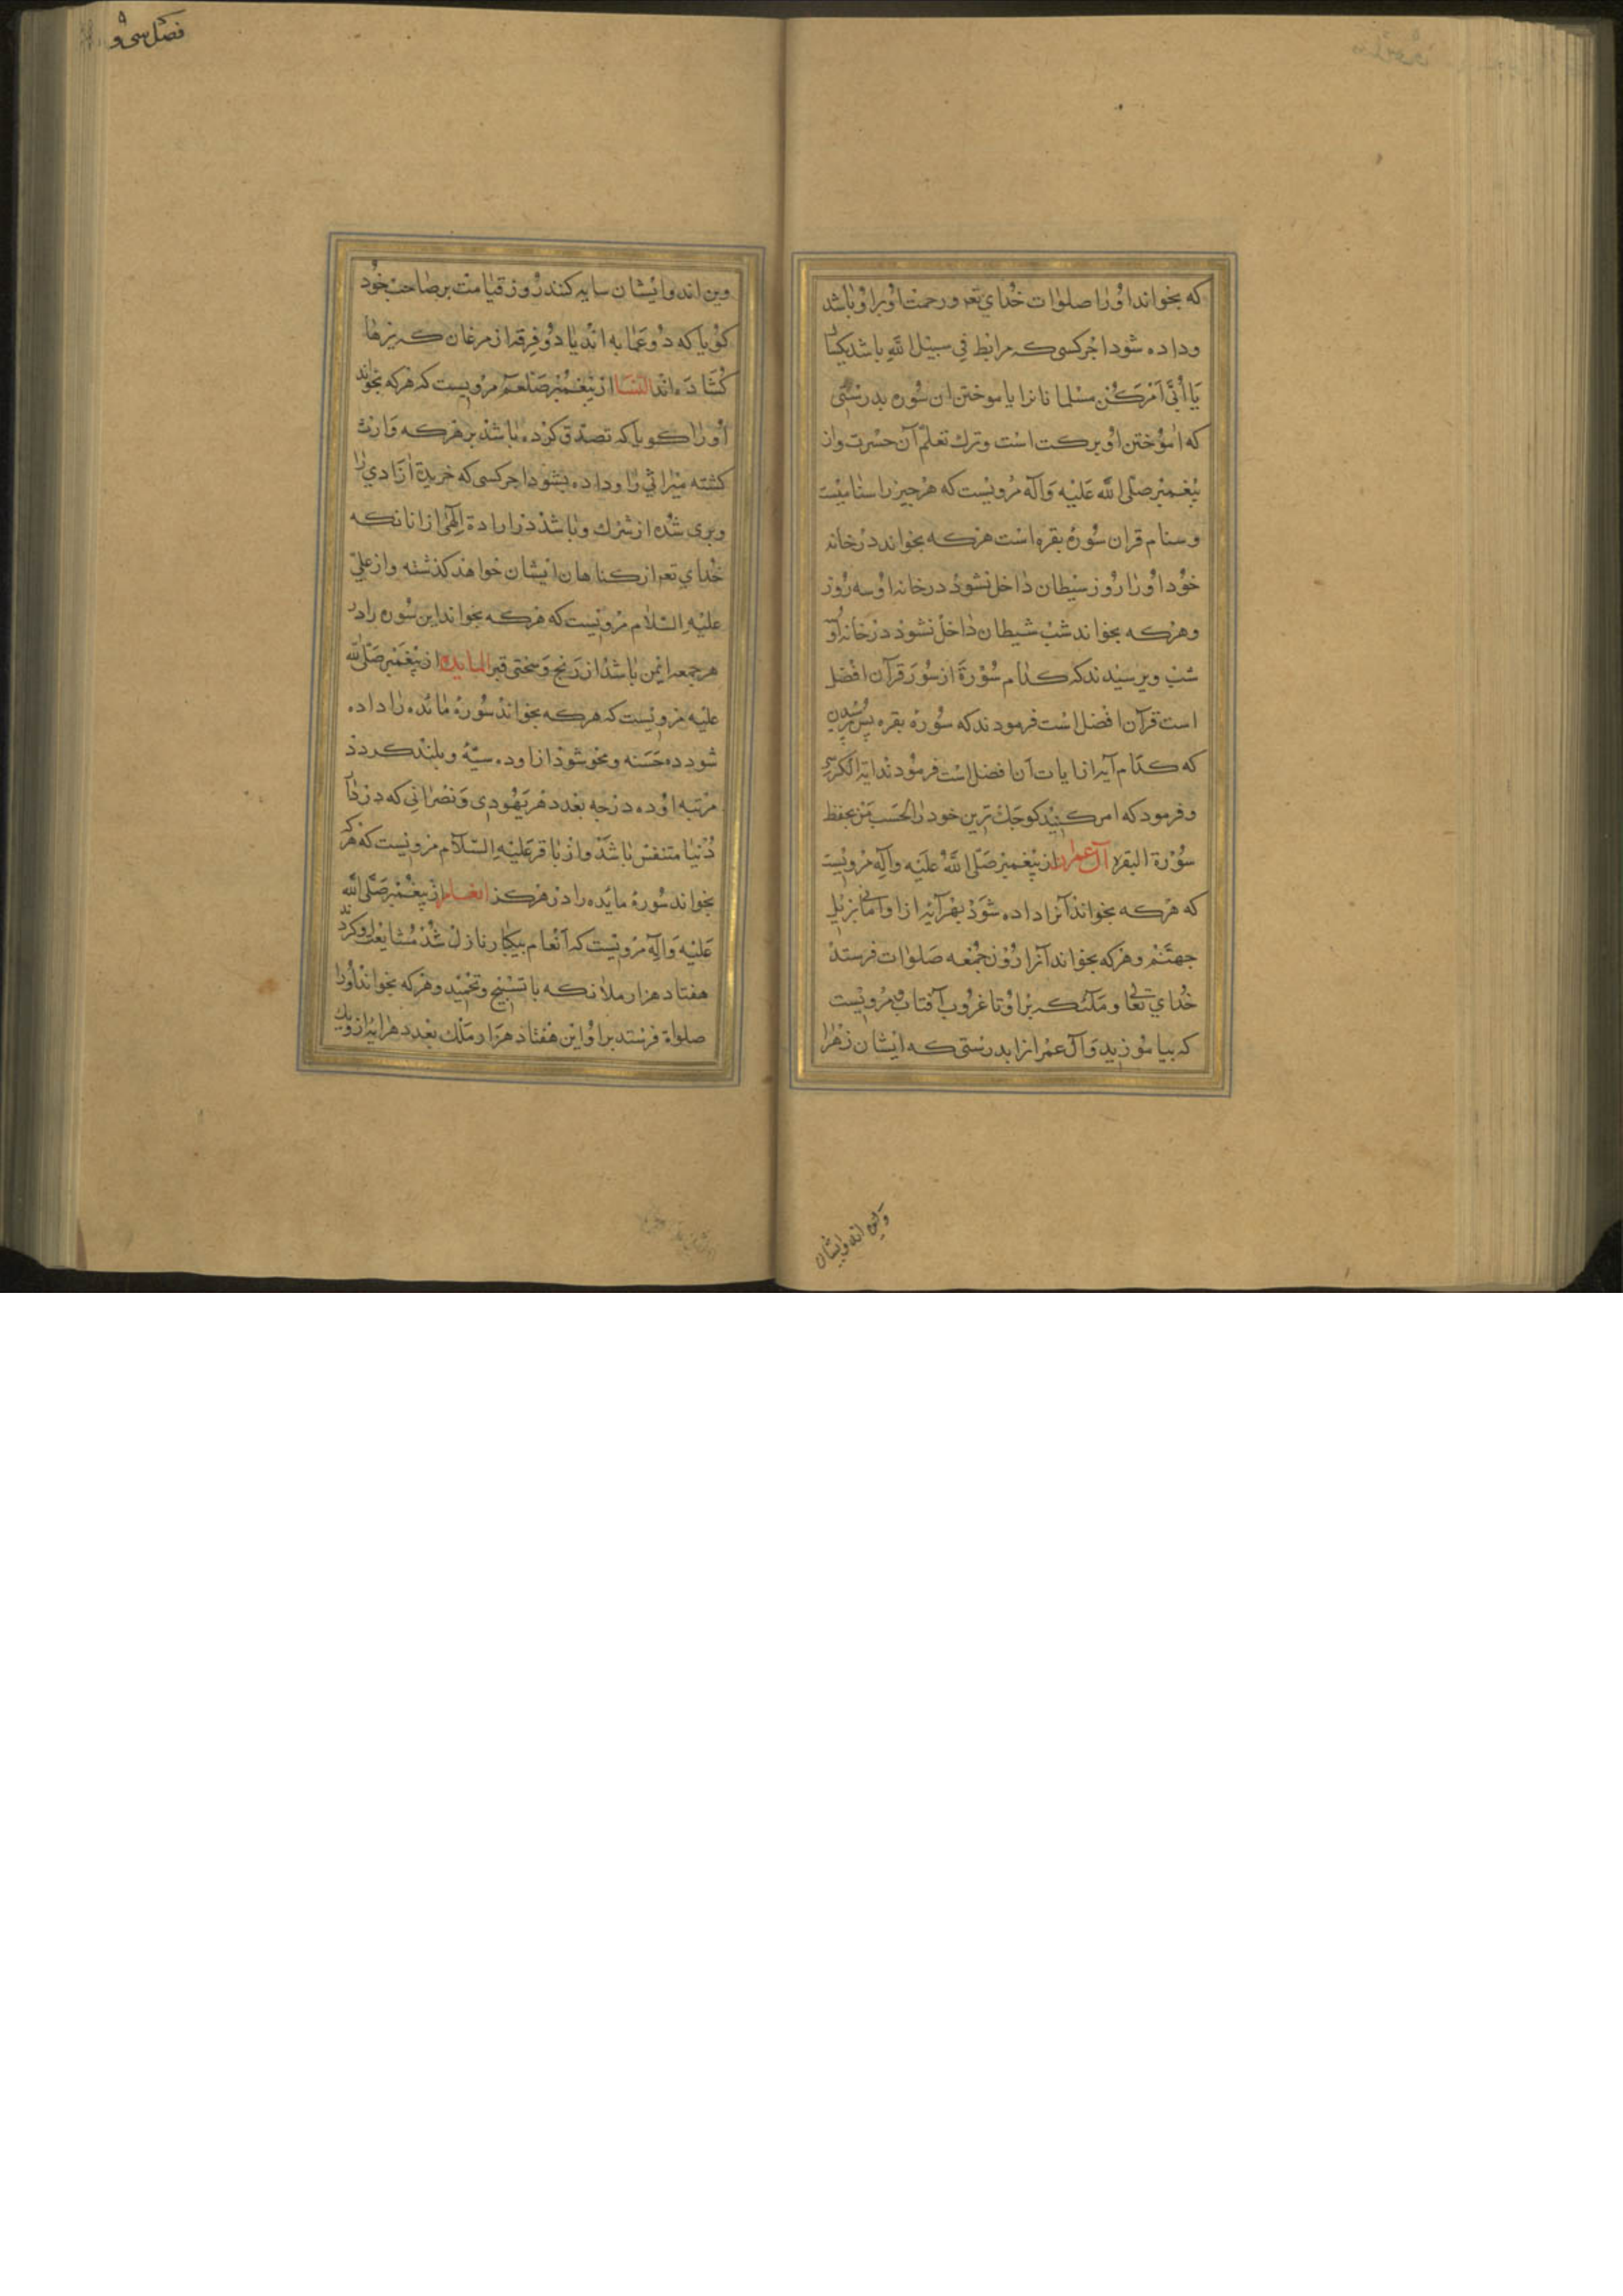 که بخواند او را صلوات خدای تعه و رحمت او بر او باشد
و داده شود اجر کسی که مرابط فی سبیل الله باشد یکسال
یا اُبَیّ اَمر کن مسلمانانرا باموختن ان سوره بدرستی
که اموختن او برکت است و ترک تعلم آن حسرت و از
پیغمبر صلی الله علیه و آله مرویست که هر چیز را سنامیست
و سنام قران سورهٔ بقره است هرکه بخواند در خانه
خود او را روز شیطان داخل نشود در خانه او سه روز
و هرکه بخواند شب شیطان داخل نشود در خانه او
شب و پرسیدند که کدام سورة از سور قرآن افضل
است قرآن افضل است فرمودند که سورهٔ بقره پس پرسیدن
که کدام آیه از ایات آن افضل است فرمودند ایة الکرسی
و فرمود که امر کنید کوچک ترین خود را لحسب من بحفظ
سورة البقره آل عمران از پیغمبر صلی الله علیه و آله مرویست
که هرکه بخواند آنرا داده شود بهر آیه از او امانی بر پل
جهنم و هرکه بخواند آنرا روز جمعه صلوات فرستد
خدای تعالی و ملئکه بر او تا غروب آفتاب و مرویست
که بیاموزید و آل عمران را بدرستی که ایشان زهرا
ولین اند و ایشان
فصل سی و
وین اند و ایشان سایه کنند روز قیامت بر صاحب خود
کویا که دو عمابه اند یا دو فرقه از مرغان که پرها
کشاده اند النسا از پیغمبر صلعم مرویست که هرکه بخواند
او را کویا که تصدق کرده باشد بر هرکه وارث
کشته میراثی را و داده بشود اجر کسی که خریدة ازادی را
و بری شده از شرک و باشد در ارادة الهی از انانکه
خدای تعه از کناهان ایشان خواهد کذشته و از علی
علیه السلام مرویست که هرکه بخواند این سوره را در
هر جمعه ایمن باشد از رنج و سختی قبر المایده از پیغمبر صلی الله
علیه مرویست که هرکه بخواند سورهٔ مائده را داده
شود ده حسنه و محو شود از او ده سیّه و بلند کردد
مرتبه او ده درجه بعدد هر یهودی و نصرانی که در دار
دنیا متنفس باشد و از باقر علیه السلام مرویست که هرکه
بخواند سورهٔ مایده را در هرکز انعام از پیغمبر صلی الله
علیه و آله مرویست که آنعام بیکبار نازل شد مشایعت او کردند
هفتاد هزار ملائکه با تسبیح و تحمید و هرکه بخواند او را
صلواة فرستد بر او این هفتاد هزار ملک بعدد هر ایه از